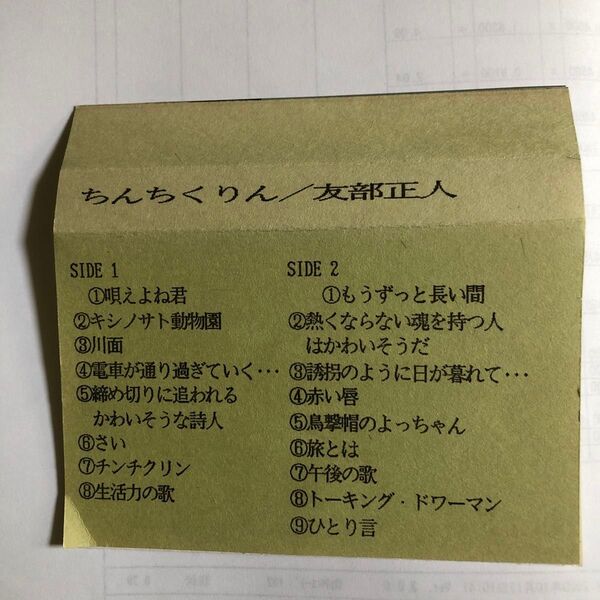 ちんちくりん／友部正人
SIDE 1
①唄えよね君
②キシノサト動物園
③川面
④電車が通り過ぎていく･･･
⑤締め切りに追われる
かわいそうな詩人
⑥さい
⑦チンチクリン
⑧生活力の歌
SIDE 2
①もうずっと長い間
②熱くならない魂を持つ人
はかわいそうだ
③誘拐のように日が暮れて･･･
④赤い唇
⑤鳥撃帽のよっちゃん
⑥旅とは
⑦午後の歌
⑧トーキング・ドワーマン
⑨ひとり言